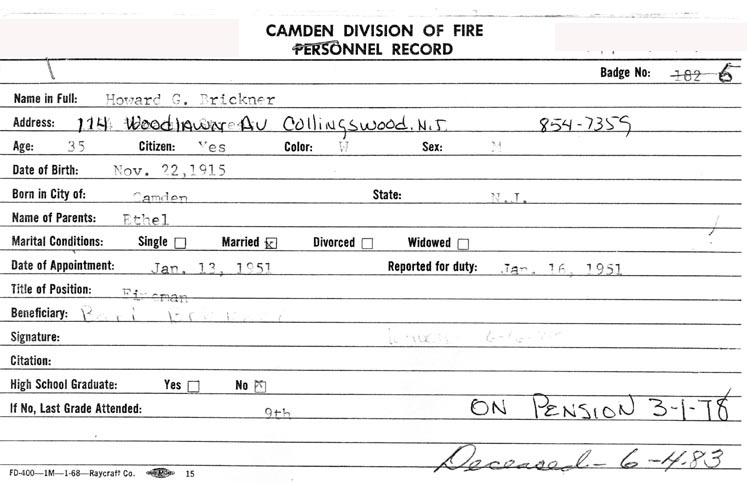 CAMDEN DIVISION OF FIRE
PERSONNEL RECORD
Badge No: 182 6
Name in Full: Howard G. Brickner
Address: 114 Woodlawn Av Collingswood. N.J. 854-7359
Age: 35 Citizen: Yes Color: W Sex: M
Date of Birth: Nov. 22,1915
Born in City of: Camden State: N.J.
Name of Parents: Ethel
Marital Conditions: Single Married x Divorced Widowed
Date of Appointment: Jan. 13, 1951 Reported for duty: Jan. 16, 1951
Title of Position: Fireman
Beneficiary:
Signature:
Citation:
High School Graduate: Yes No x
If No, Last Grade Attended: 9th ON PENSION 3-1-78
Deceased - 6-4-83
FD-400—1M—1-68—Raycraft Co. 15